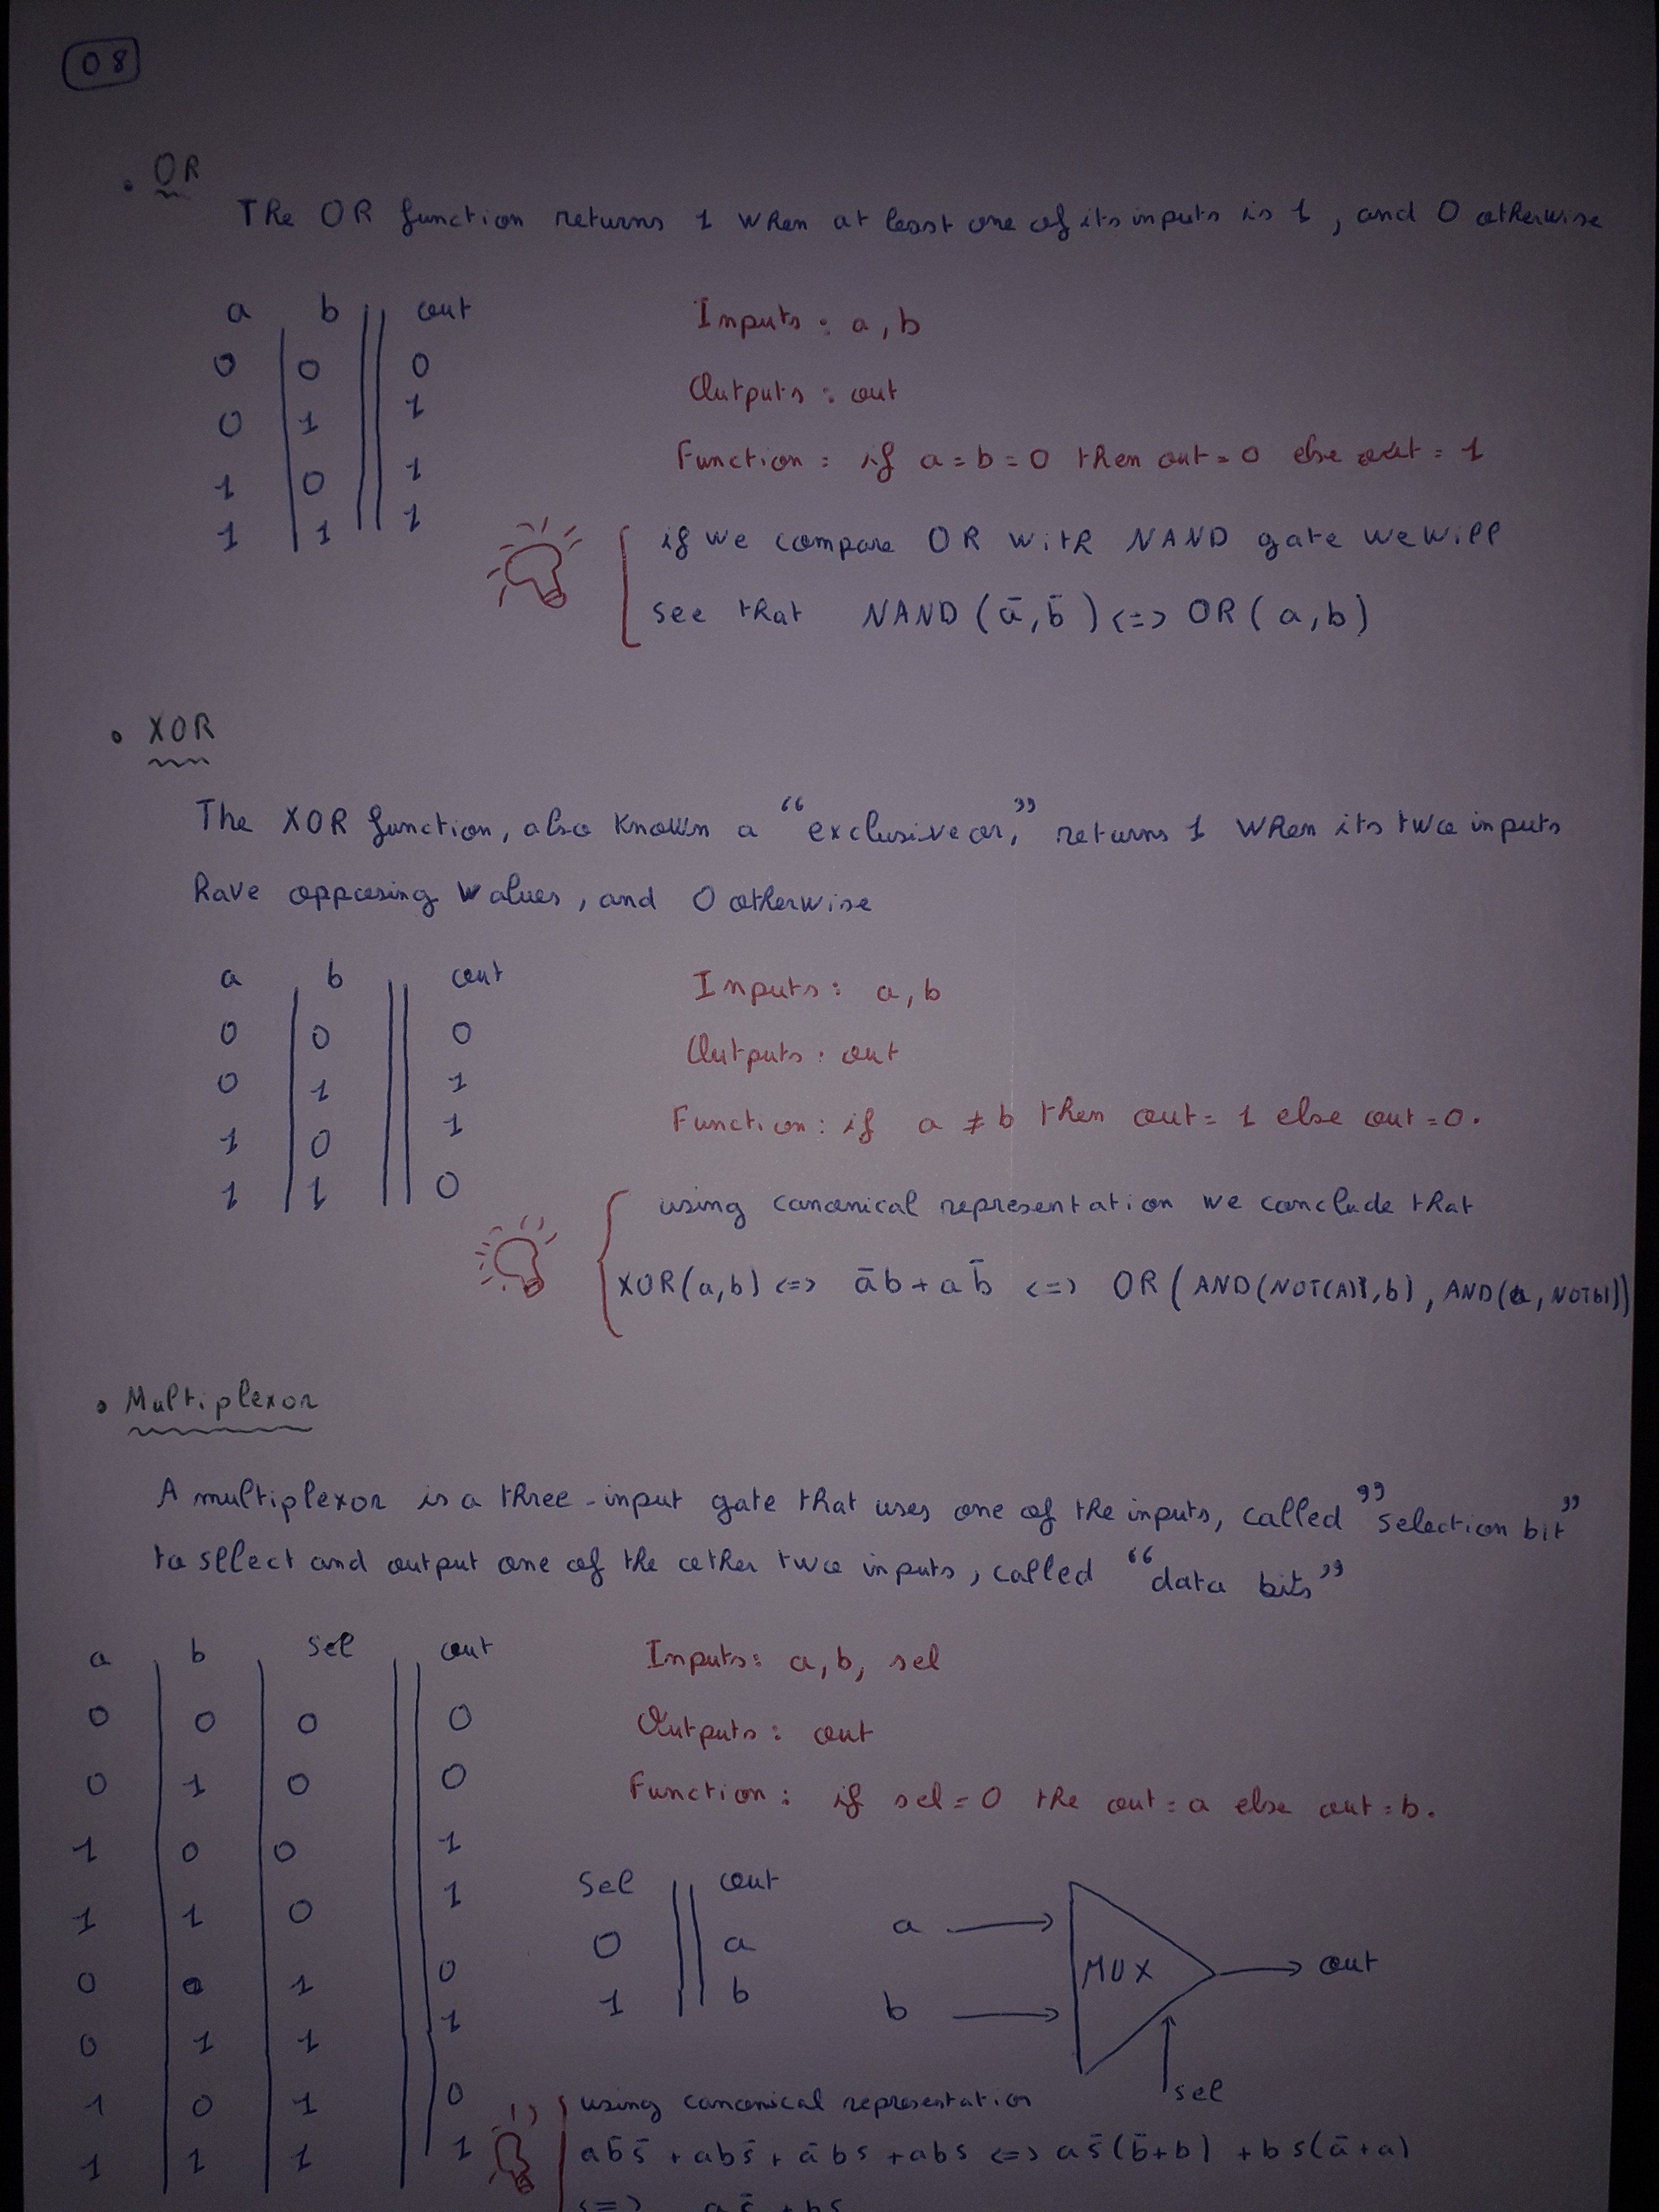 08
• OR
The OR function returns 1 when at least one of its inputs is 1, and 0 otherwise
a b out
0 0 0
0 1 1
1 0 1
1 1 1
Inputs: a, b
Outputs: out
Function: if a = b = 0 then out = 0 else out = 1
if we compare OR with NAND gate we will
see that NAND(ā, b̄) <=> OR(a, b)
• XOR
The XOR function, also known a “exclusive or,” returns 1 when its two inputs
have opposing values, and 0 otherwise
a b out
0 0 0
0 1 1
1 0 1
1 1 0
Inputs: a, b
Outputs: out
Function: if a ≠ b then out = 1 else out = 0.
using canonical representation we conclude that
XOR(a, b) <=> āb + ab̄ <=> OR(AND(NOT(A), b), AND(a, NOTb))
• Multiplexor
A multiplexor is a three-input gate that uses one of the inputs, called ”selection bit”
to sllect and output one of the other two inputs, called “data bits”
a b sel out
0 0 0 0
0 1 0 0
1 0 0 1
1 1 0 1
0 0 1 0
0 1 1 1
1 0 1 0
1 1 1 1
Inputs: a, b, sel
Outputs: out
Function: if sel = 0 the out = a else out = b.
sel out
0 a
1 b
a
b
MUX
out
sel
using canonical representation
ab̄s̄ + abs̄ + ābs + abs <=> as̄(b̄+b) + bs(ā+a)
<=> as̄ + bs